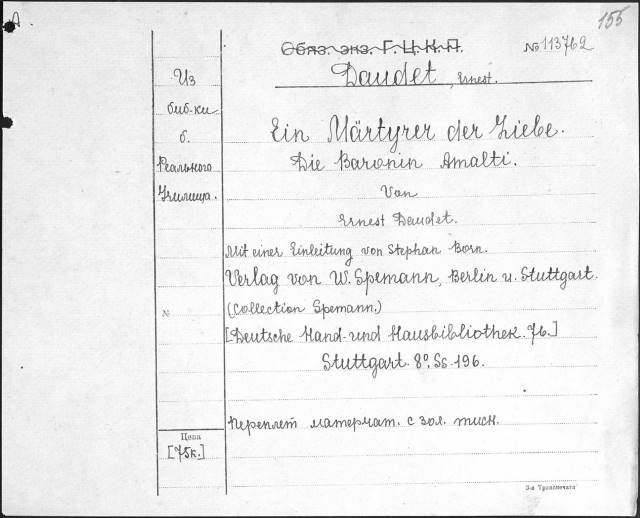 155
Обяз. экз. Г.Ц.К.П.
№ 113762
Daudet, Ernest.
Из
биб-ки
б.
Реального
Училища.
Ein Märtyrer der Liebe.
Die Baronin Amalti.
Von
Ernest Daudet.
Mit einer Einleitung von Stephan Born.
Verlag von W. Spemann, Berlin u. Stuttgart.
(Collection Spemann.)
№
[Deutsche Hand- und Hausbibliothek. 76.]
Stuttgart. 8°. Ss. 196.
Переплёт матерчат. с зол. тисн.
Цена
[75к.]
3-я Транспечать